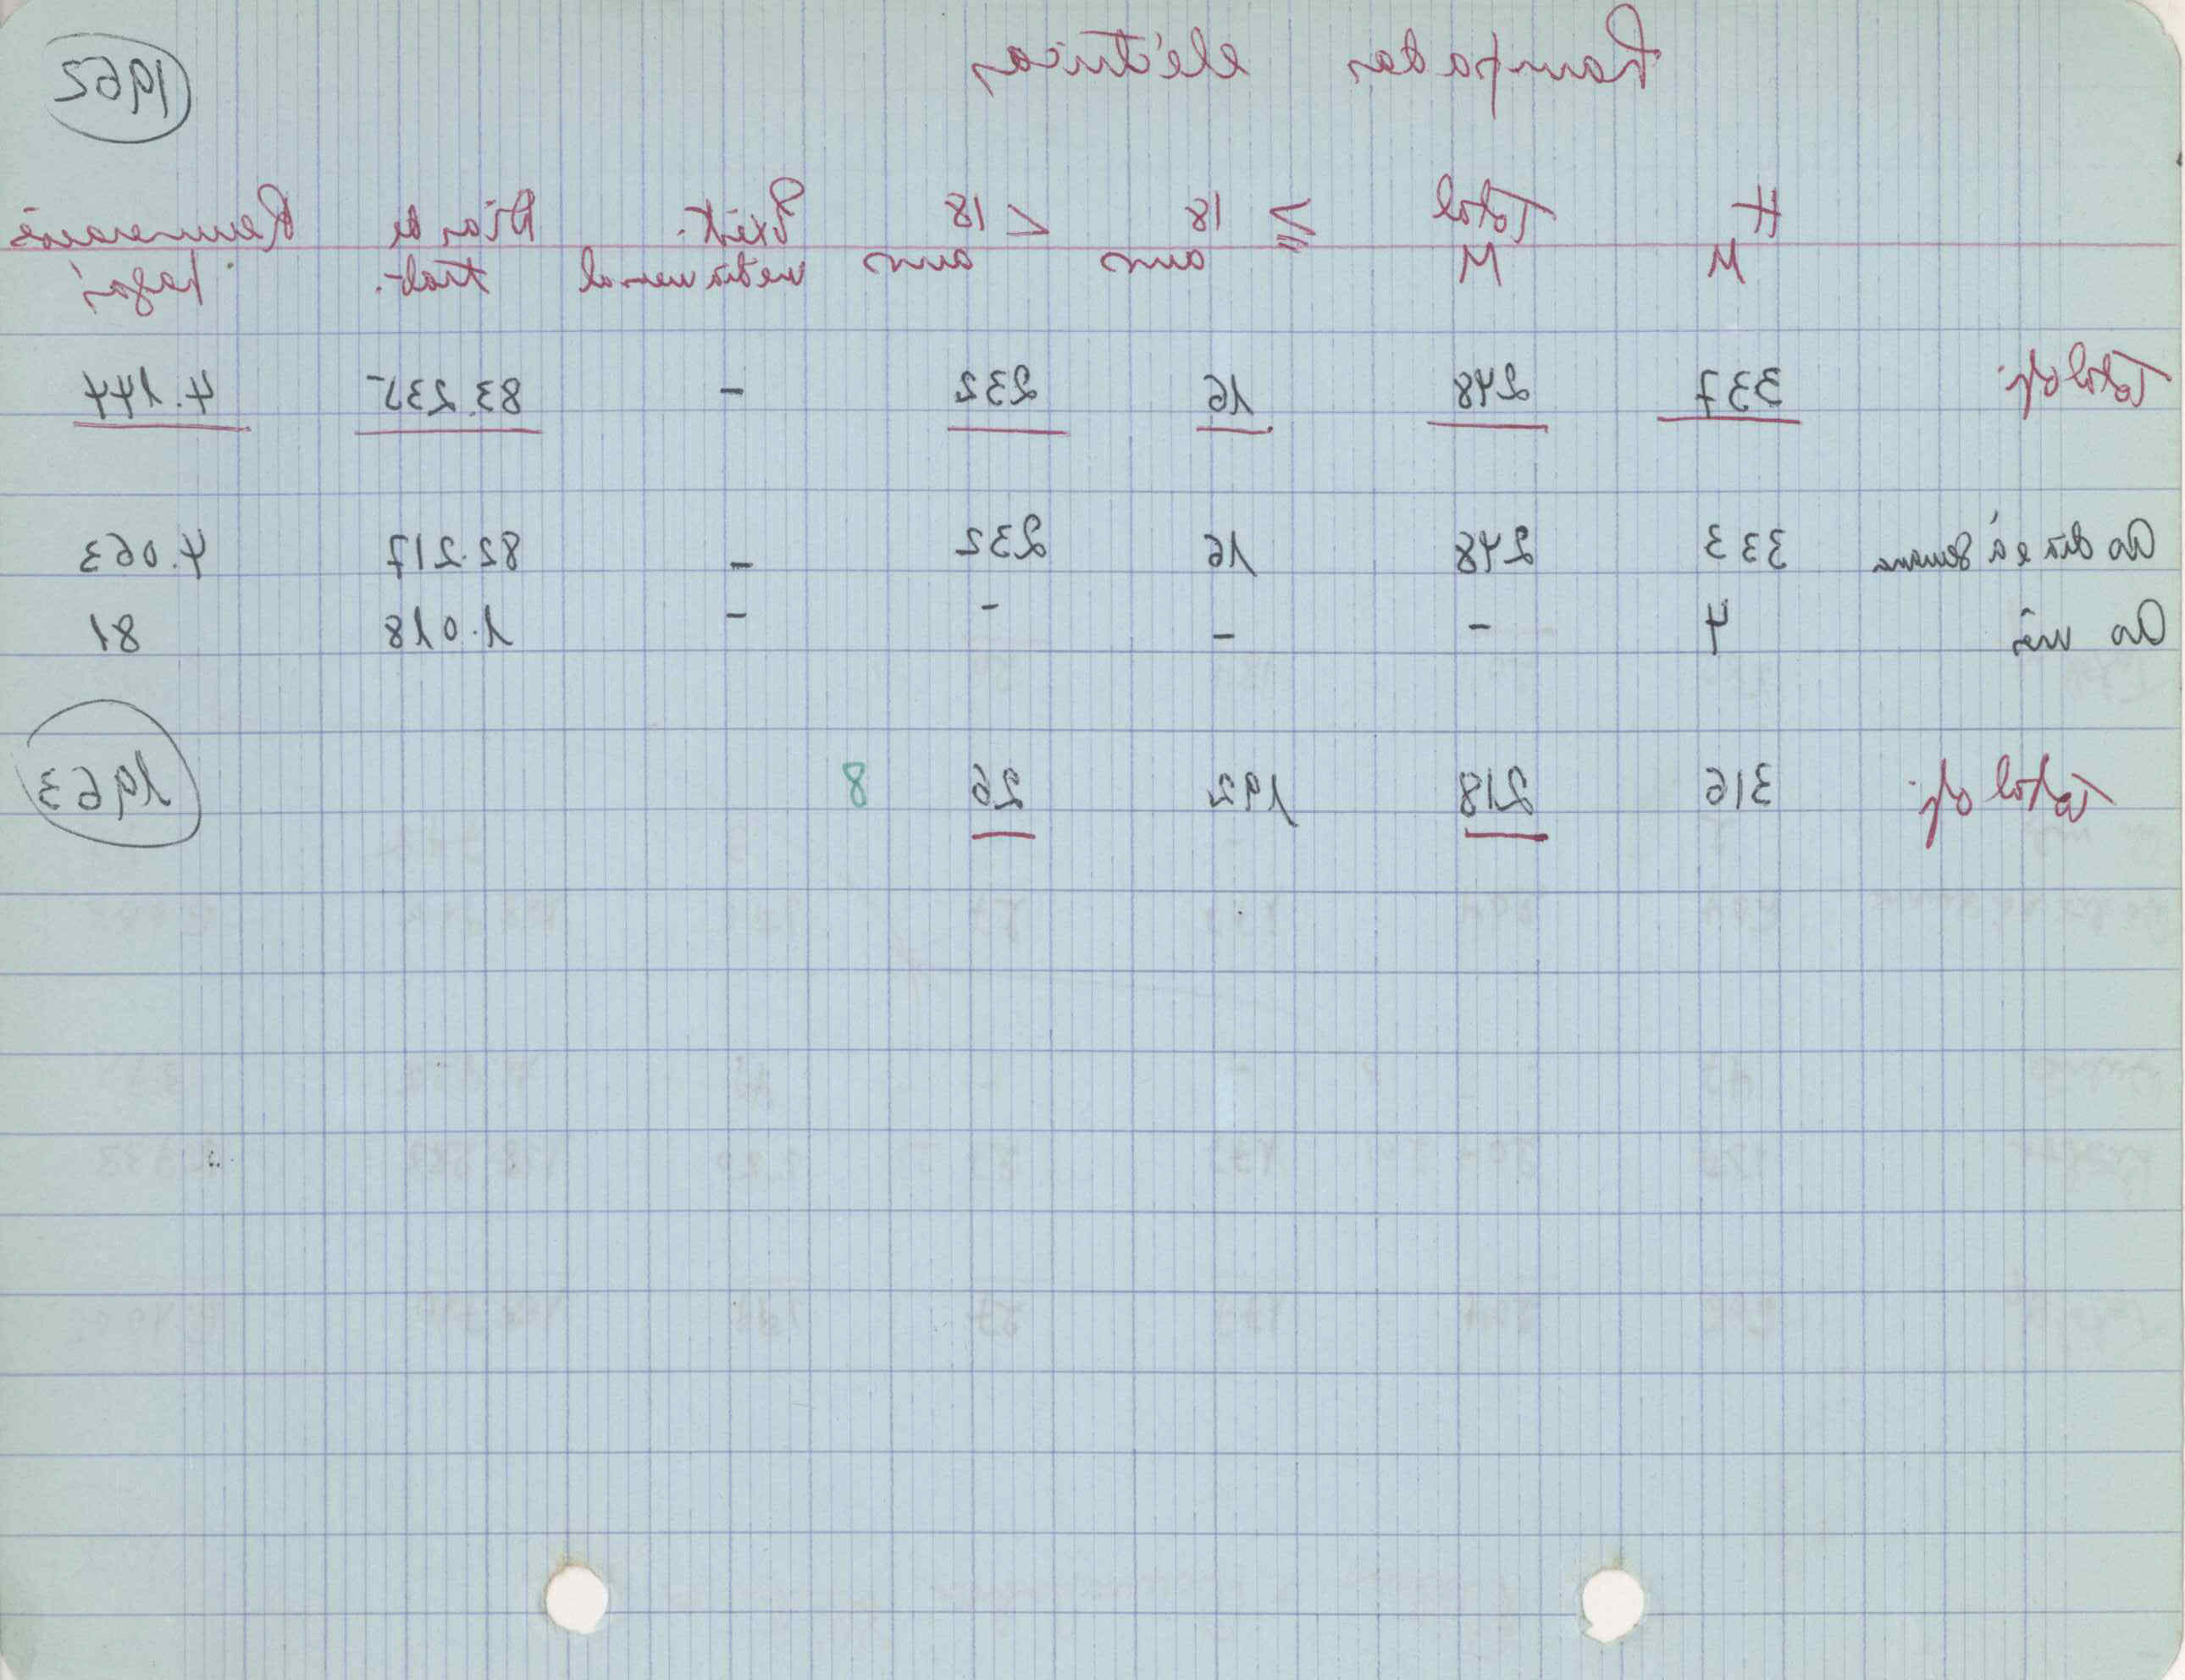 Lampadas eléctricas
1962
H M Total M ≥ 18 anos < 18 anos Exist. media mensal Dias de trab. Remunerações pagas
Total op. 337 248 16 232 - 83.235 4.144
Ao dia e à semana 333 248 16 232 - 82.217 4.063
Ao mês 4 - - - - 1.018 81
1963
Total op. 316 218 192 26 8